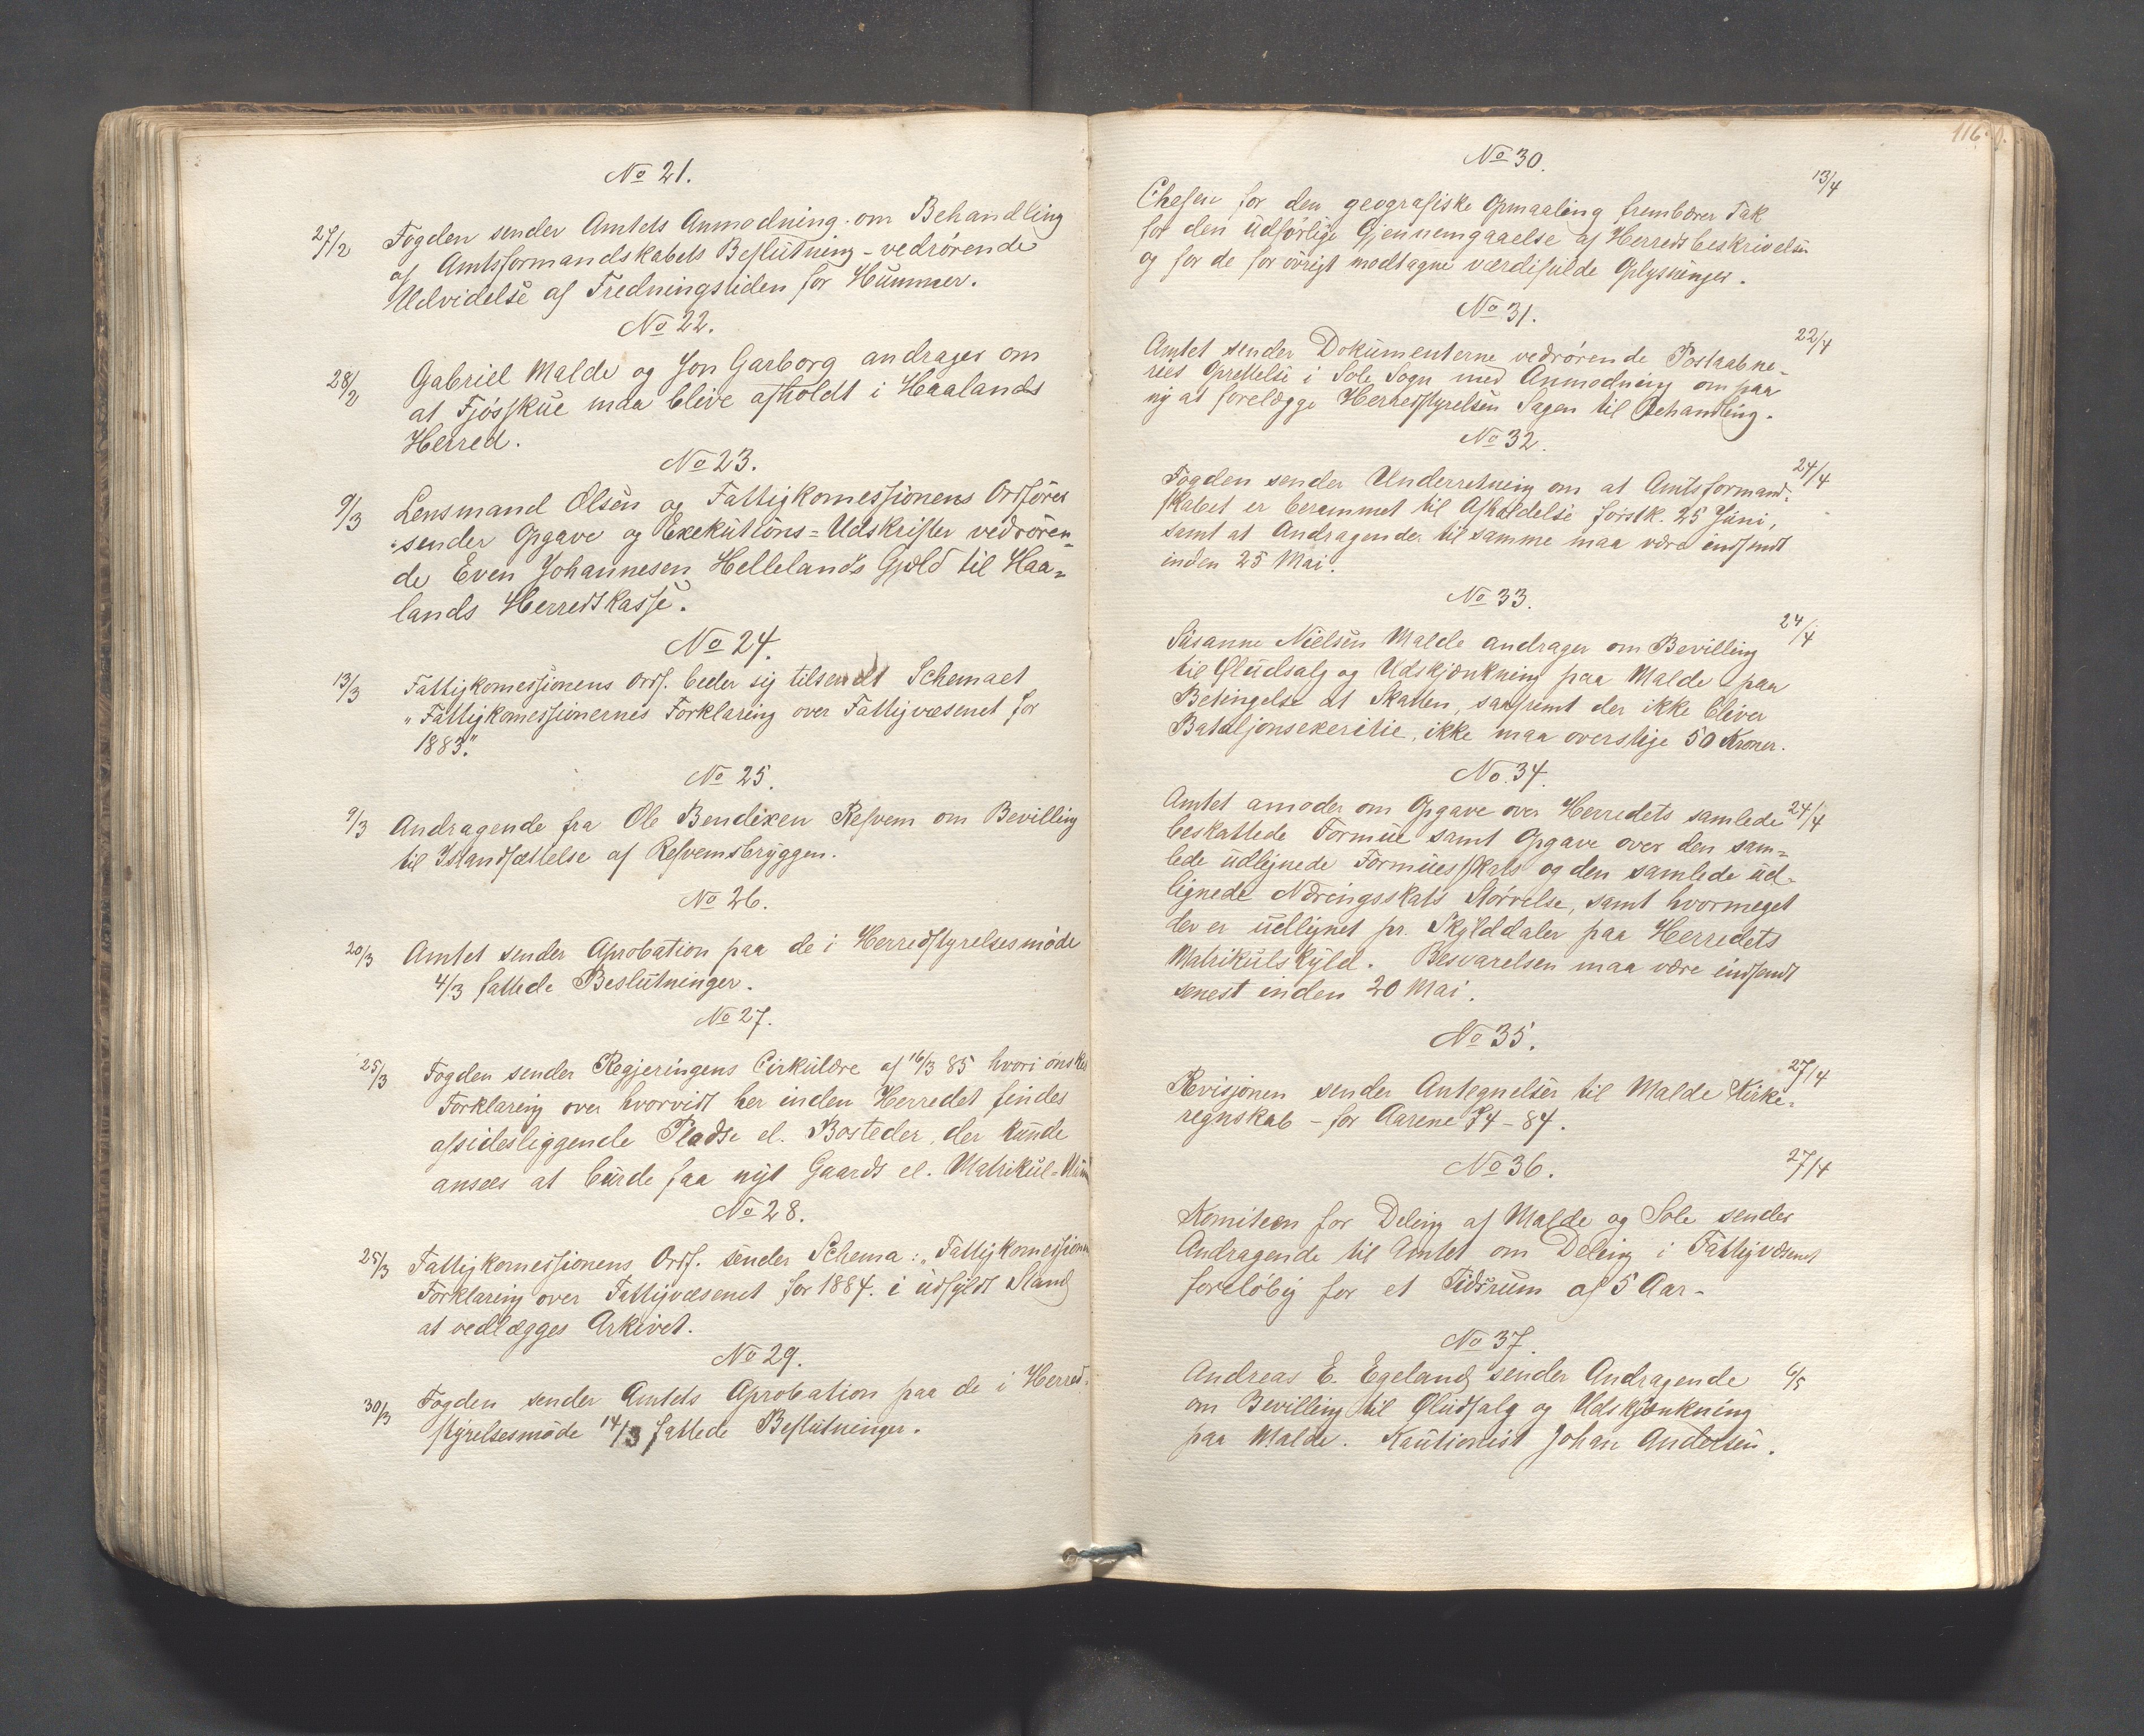 No 21.
27/2 Fogden sender Amtets Anmodning om Behandling
af Amtsformandskabets Beslutning - vedrørende
Udvidelse af Fredningstiden for Hummer.
No 22.
28/2 Gabriel Malde og Jon Garborg andrager om
at Fjøsskue maa blive afholdt i Haalands
Herred.
No 23.
9/3 Lensmand Olsen og Fattigkomessionens Ordfører
sender Opgave og Exekutions=Udskrifter vedrøren=
de Even Johannesen Hellelands Gjæld til Haa=
lands Herredskasse.
No 24.
13/3 Fattigkomessionens Ordf. beder sig tilsendt Schemaet
"Fattigkomessionernes Forklaring over Fattigvæsenet for
1883".
No 25.
9/3 Andragende fra Ole Bendixen Refvem om Bevilling
til Istandsættelse af Refvemsbryggen.
No 26.
20/3 Amtet sender Aprobation paa de i Herredstyrelsesmøde
4/3 fattede Beslutninger.
No 27.
25/3 Fogden sender Regjeringens Cirkulære af 16/3 85 hvori ønskes
Forklaring over hvorvidt her inden Herredet findes
afsidesliggende Pladse el. Bosteder, der kunde
ansees at burde faa nyt Gaards el. Matrikul=Num
No 28.
25/3 Fattigkomessionens Ordf. sender Schema: "Fattigkomessionens
Forklaring over Fattigvæsenet for 1884. i udfyldt Stand
at vedlægges Arkivet.
No 29.
30/3 Fogden sender Amtets Aprobation paa de i Herred=
styrelsesmøde 14/3 fattede Beslutninger.
116.
No 30.
13/4
Chefen for den geografiske Opmaaling frembærer Tak
for den udførlige Gjennemgaaelse af Herredsbeskrivelsen
og for de for øvrigt modtagne værdifulde Oplysninger.
No 31.
22/4
Amtet sender Dokumenterne vedrørende Postaabne-
ries Oprettelse i Sole Sogn med Anmodning om paa
ny at forelægge Herredsstyrelsen Sagen til Behandling.
No 32.
24/4
Fogden sender Underretning om at Amtsformand-
skabet er berammet til Afholdelse førstk. 25 Juni,
samt at Andragender til samme maa være indsendt
inden 25 Mai.
No 33.
24/4
Susanne Nielsen Malde andrager om Bevilling
til Øludsalg og Udskjænkning paa Malde - paa
Betingelse at Skatten, saafremt der ikke bliver
Bataljonsekseritie, ikke maa overstige 50 Kroner.
No. 34.
Amtet amoder om Opgave over Herredets samlede 24/4
beskattede Formue samt Opgave over den sam=
lede udlignede Formuesskats og den samlede ud-
lignede Næringsskats Størrelse, samt hvormeget
der er udlignet pr. Skylddaler paa Herredets
Matrikulskyld. Besvarelsen maa være indsendt
senest inden 20 Mai.
No 35.
27/4
Revisjonen sender Antegnelser til Malde Kirke-
regnskab - for Aarene 74 - 84.
No 36.
27/4
Komiteen for Deling af Malde og Sole sender
Andragende til Amtet om Deling i Fattigvæsenet
foreløbig for et Tidsrum af 5 Aar -
No 37.
Andreas E. Egeland sender Andragende 6/5
om Bevilling til Øludsalg og Udskjænkning
paa Malde. Kautionist Johan Andersen.